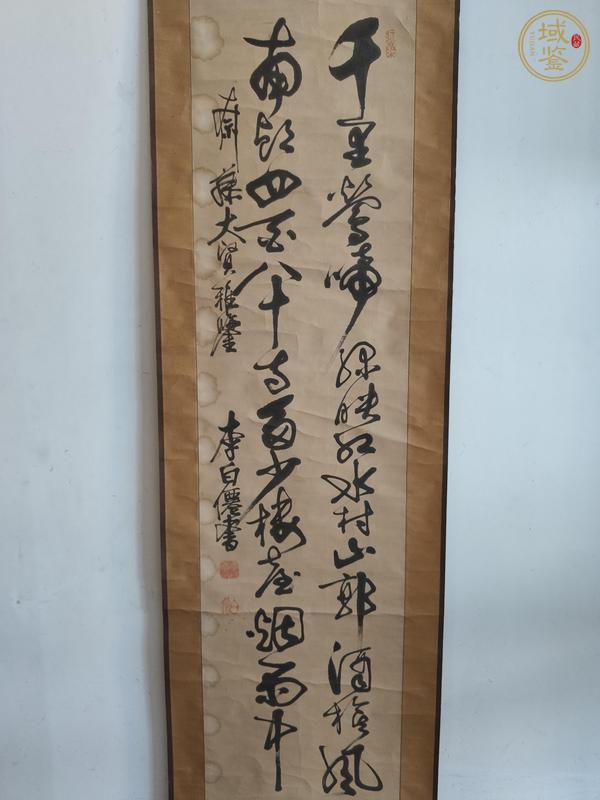 千里鶯啼綠映紅水村山郭酒旗風
南朝四百八十寺多少樓臺烟雨中
大賢雅鑒
李白僊書
域鉴
YUJIAN